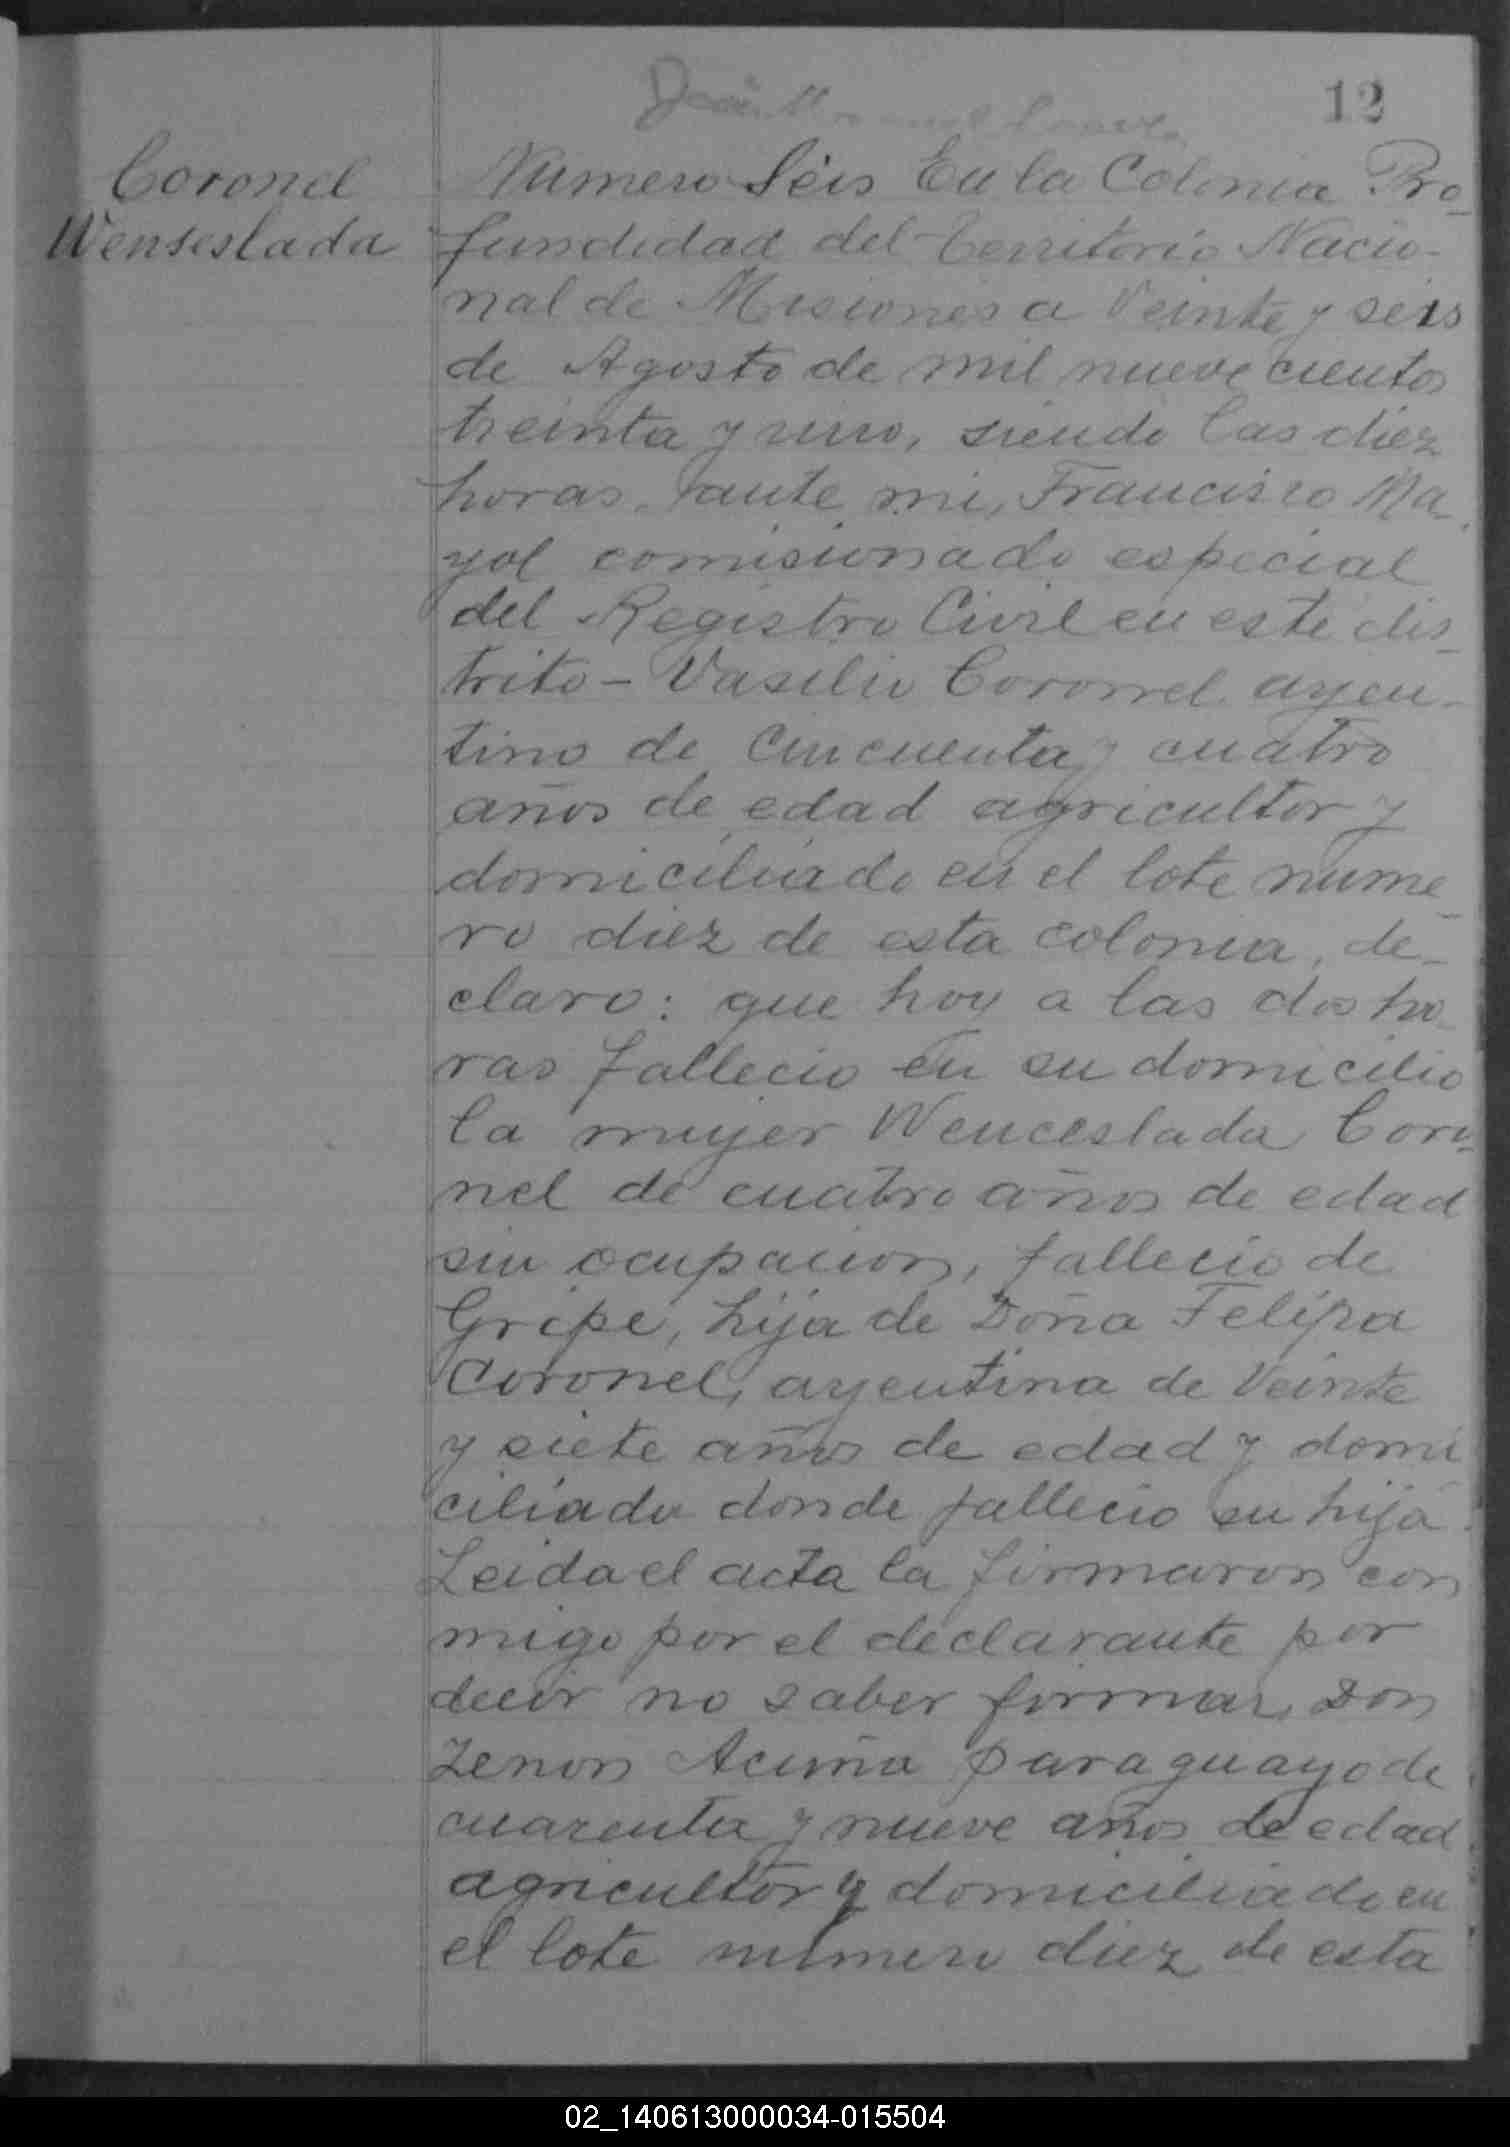 12
Coronel
Wenseslada
Numero Seis En la Colonia Pro_
fundidad del Territorio Nacio-
nal de Misiones a Veinte y seis
de Agosto de mil nueve cientos
treinta y uno, siendo las diez
horas, ante mi, Francisco Ma_
yol comisionado especial
del Registro Civil en este dis_
trito - Vasilio Coronel argen_
tino de Cincuenta y cuatro
años de edad agricultor y
domiciliado en el lote nume_
ro diez de esta colonia, de_
claro: que hoy a las dos ho_
ras fallecio en su domicilio
la mujer Wenceslada Coro_
nel de cuatro años de edad
sin ocupacion, fallecio de
Gripe, hija de Doña Felipa
Coronel, argentina de Veinte
y siete años de edad y domi
ciliada donde fallecio su hija.
Leida el acta la firmaron con
migo por el declarante por
decir no saber firmar, Don
Zenon Acuña paraguayo de
cuarenta y nueve años de edad
agricultor y domiciliado en
el lote numero diez de esta
02_140613000034-015504